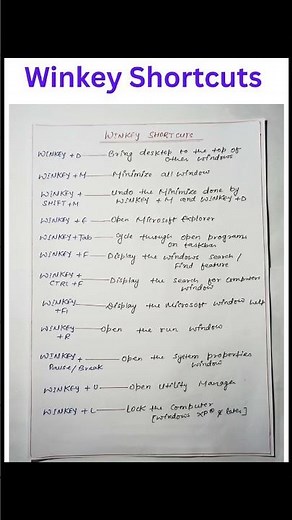 Winkey Shortcuts
WINKEY SHORTCUTS
WINKEY + D Bring desktop to the top of
other windows
WINKEY + M Minimize all window
WINKEY +
SHIFT + M Undo the Minimize done by
WINKEY + M and WINKEY + D
WINKEY + E Open Microsoft Explorer
WINKEY + Tab Cycle through open programs
on taskbar
WINKEY + F Display the windows search /
Find feature
WINKEY +
CTRL + F Display the search for computers
window
WINKEY
+ F1 Display the Microsoft window help
WINKEY
+ R Open the run window
WINKEY +
Pause / Break Open the system properties
window
WINKEY + U Open Utility Manager
WINKEY + L Lock the Computer
[windows XP & later]